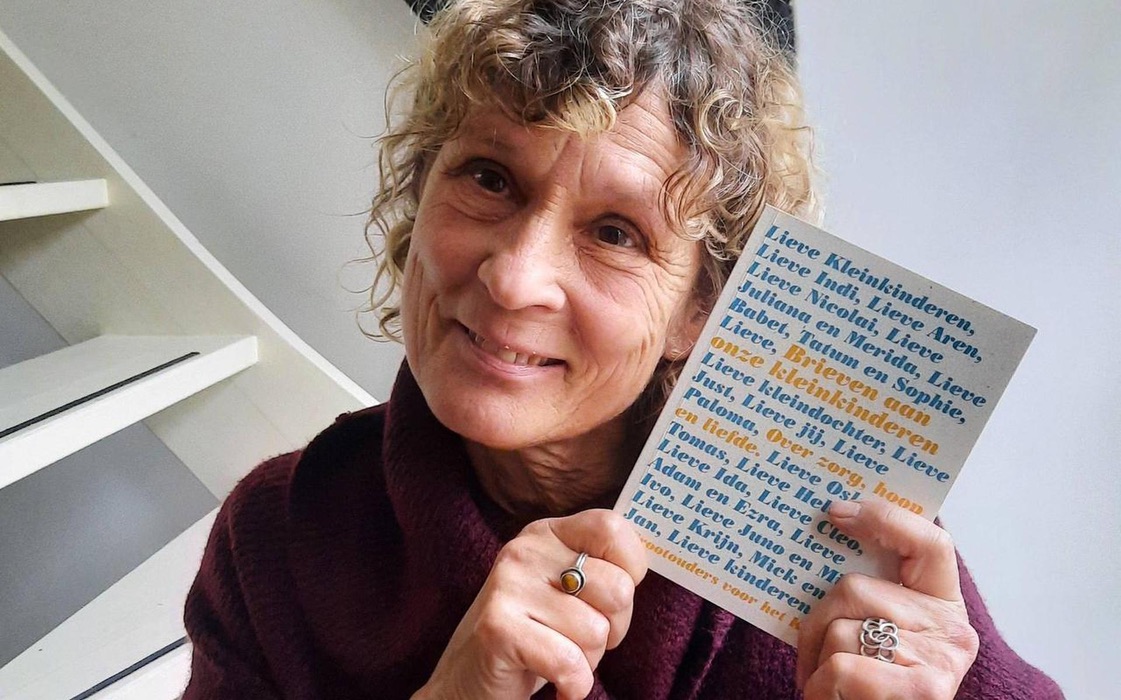 Lieve Kleinkinderen,
Lieve Indi, Lieve Aren,
Lieve Nicolai, Lieve
Juliana en Merida, Lieve
Babet, Tatum en Sophie,
Lieve, Brieven aan
onze kleinkinderen
Lieve kleindochter, Lieve
Just, Lieve jij, Lieve
Paloma, Over zorg, hoop
en liefde. Lieve
Tomas, Lieve
Lieve Ida, Lieve Cleo,
Adam en Ezra, Lieve
Ivo, Lieve Juno en
Lieve Krijn, Mick en
Jan, Lieve kinderen
Grootouders voor het